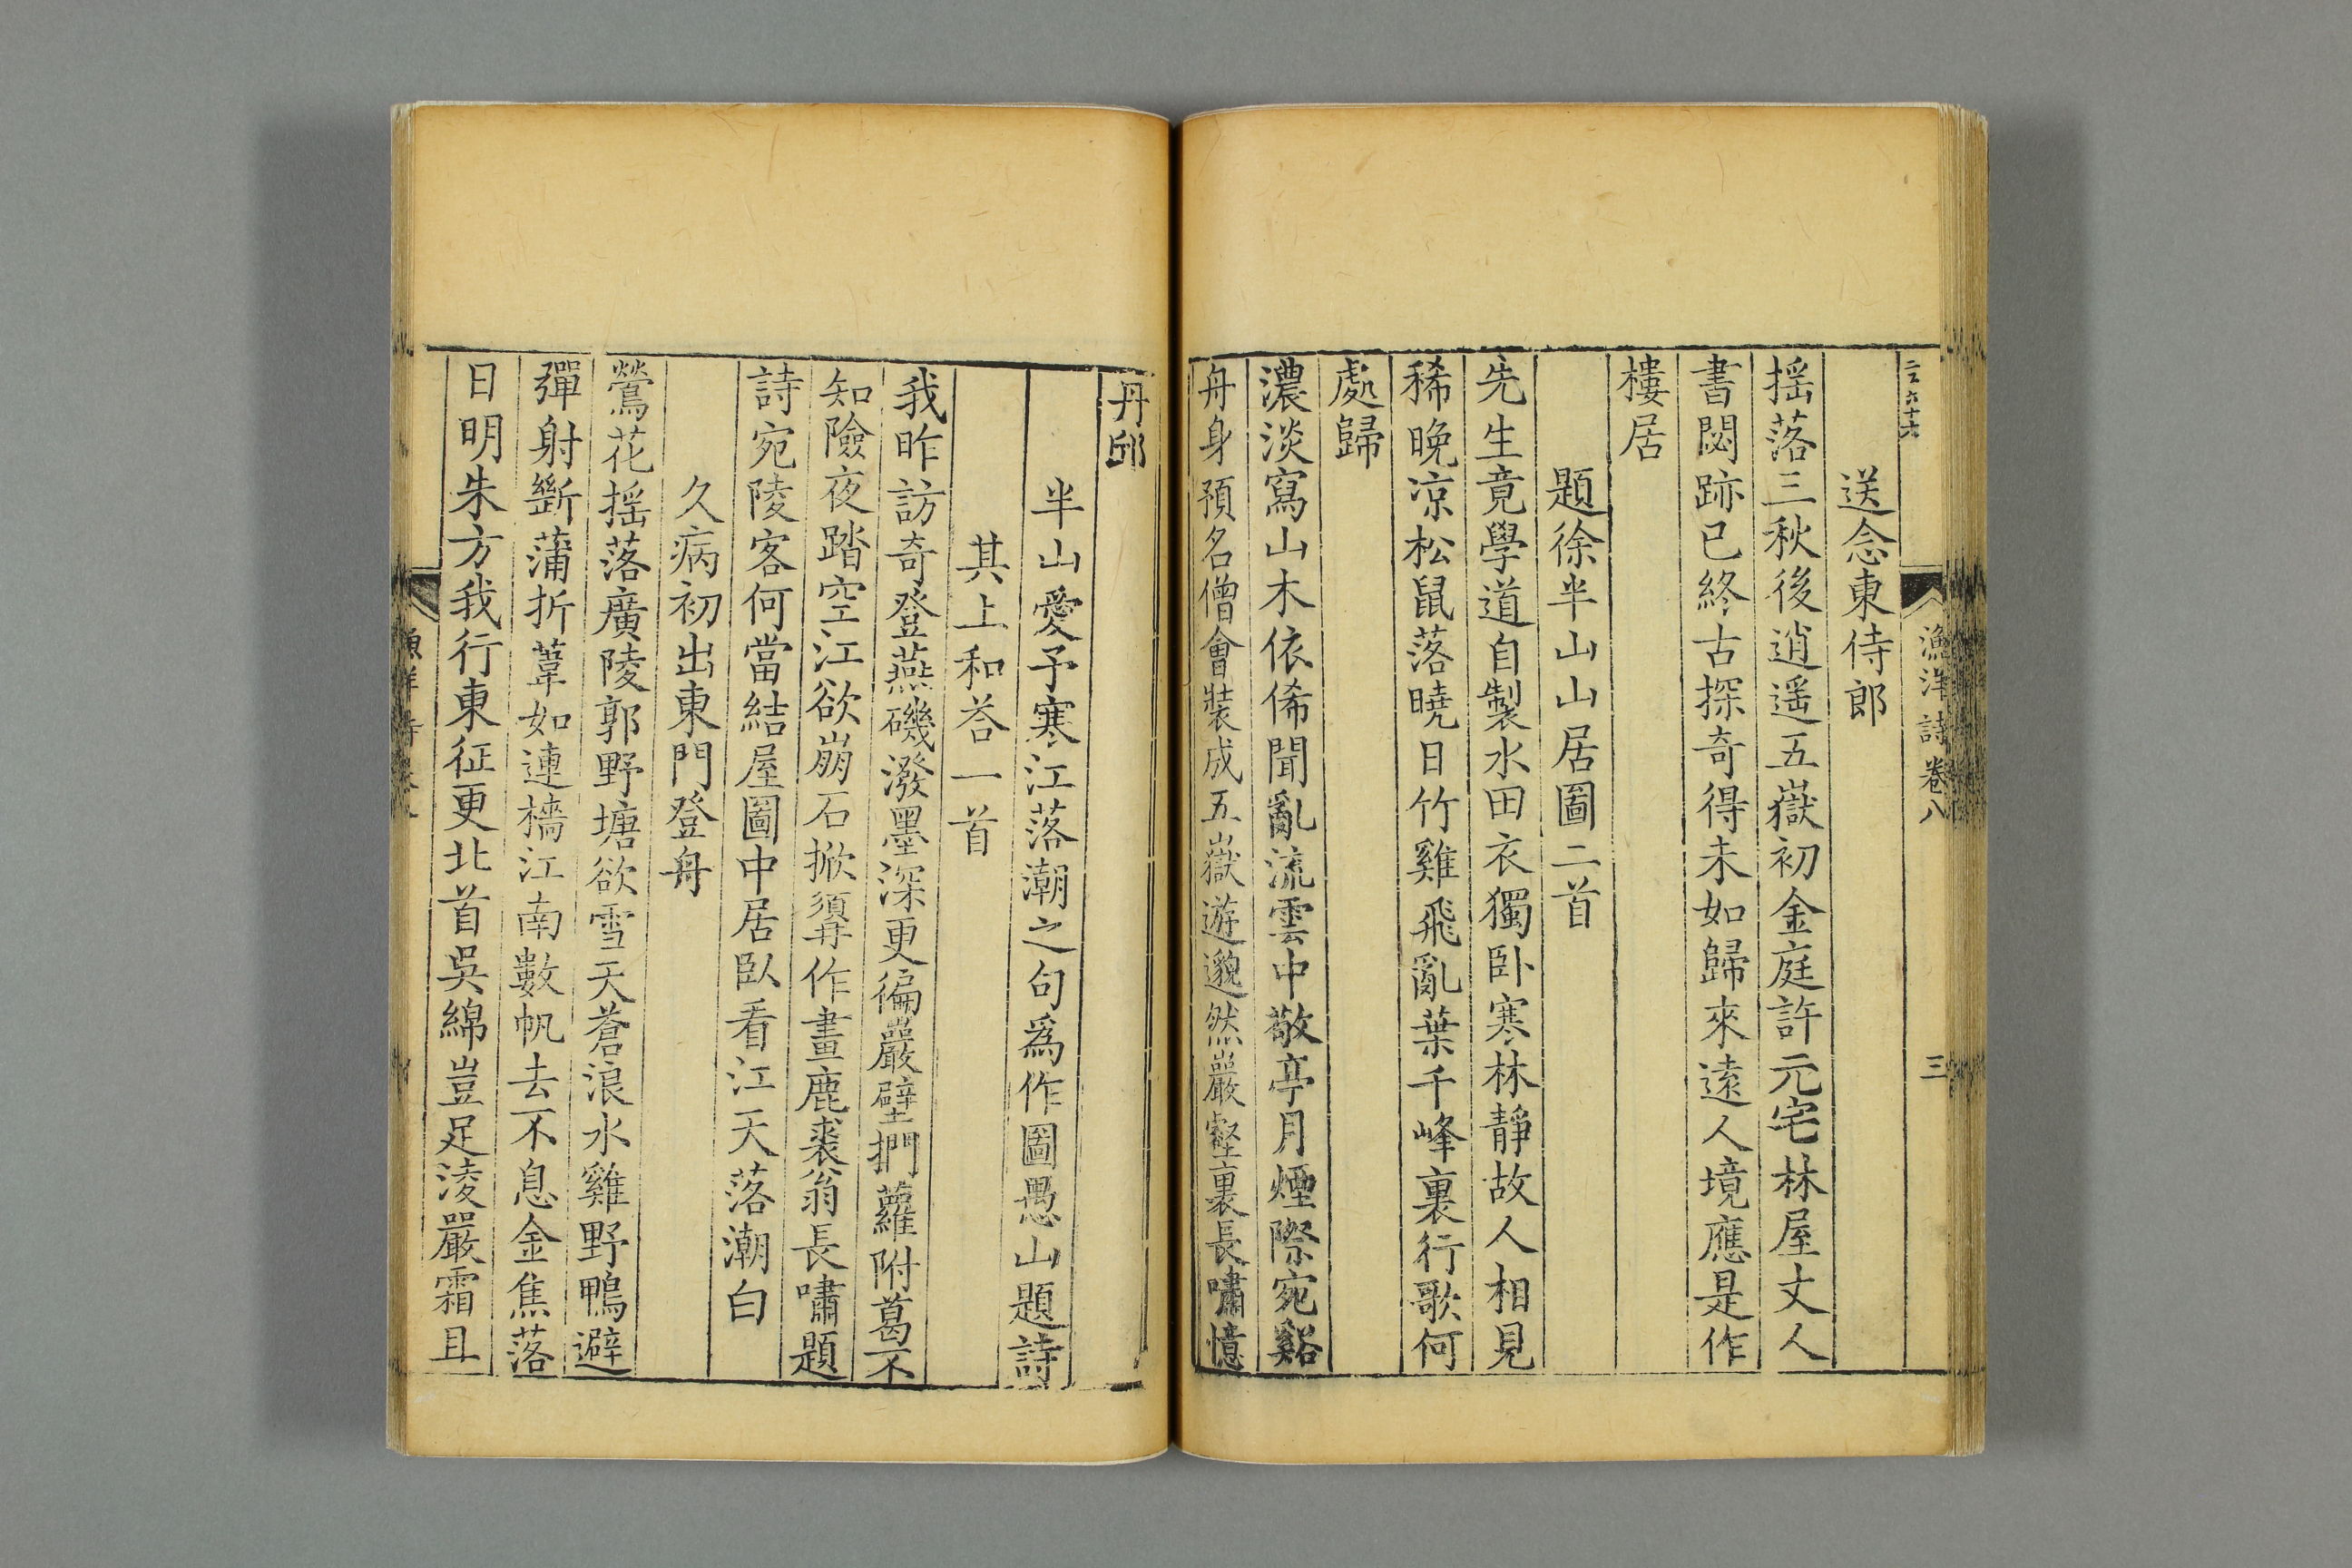 漁洋詩卷八
三
送念東侍郎
揺落三秋後逍遥五嶽初金庭許元宅林屋丈人
書閟跡已終古探奇得未如歸來遠人境應是作
樓居
題徐半山山居圖二首
先生竟學道自製水田衣獨卧寒林靜故人相見
稀晩凉松鼠落曉日竹雞飛亂葉千峰裏行歌何
處歸
濃淡寫山木依俙聞亂流雲中敬亭月煙際宛谿
舟身預名僧會裝成五嶽遊邈然巖壑裏長嘯憶
丹邱
半山愛予寒江落潮之句爲作圖愚山題詩
其上和荅一首
我昨訪奇登燕磯潑墨深更徧巖壁捫蘿附葛不
知險夜踏空江欲崩石掀髯作畫鹿裘翁長嘯題
詩宛陵客何當結屋圖中居臥看江天落潮白
久病初出東門登舟
鶯花揺落廣陵郭野塘欲雪天蒼浪水雞野鴨避
彈射斷蒲折葦如連檣江南數帆去不息金焦落
日明朱方我行東征更北首吳綿豈足淩嚴霜且